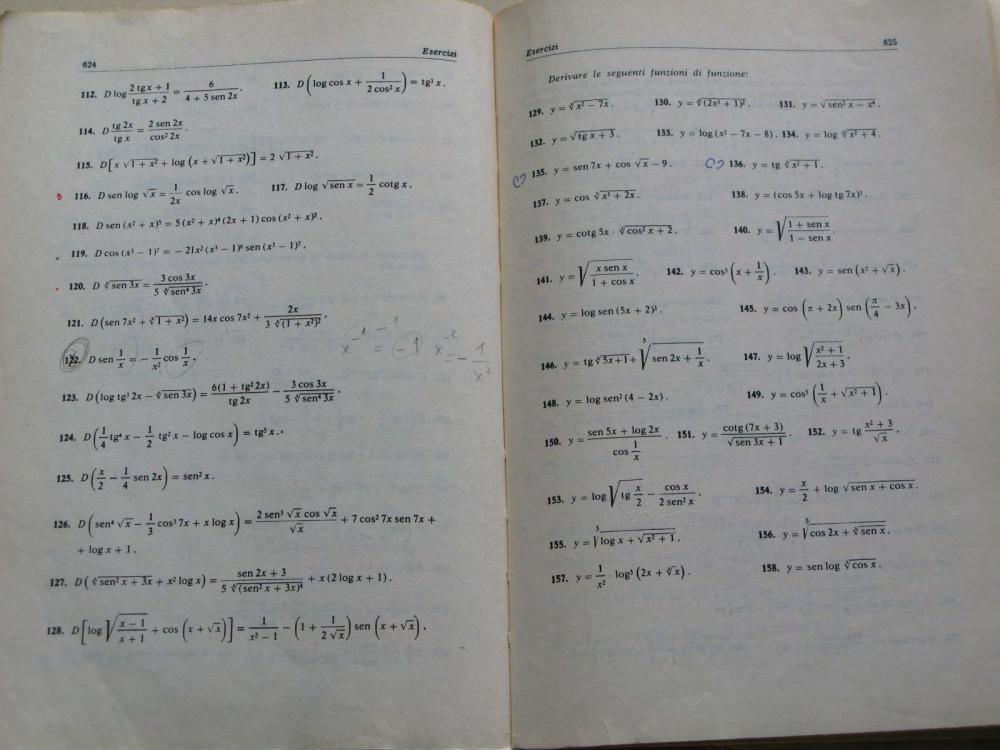 624
Esercizi
112. D log (2 tg x + 1)/(tg x + 2) = 6/(4 + 5 sen 2x). 113. D(log cos x + 1/(2 cos² x)) = tg³ x.
114. D tg 2x/tg x = 2 sen 2x/cos² 2x.
115. D[x √(1 + x²) + log (x + √(1 + x²))] = 2 √(1 + x²).
116. D sen log √x = 1/2x cos log √x. 117. D log √(sen x) = 1/2 cotg x.
118. D sen (x² + x)⁵ = 5 (x² + x)⁴ (2x + 1) cos (x² + x)⁵.
119. D cos (x³ − 1)⁷ = − 21x² (x³ − 1)⁶ sen (x³ − 1)⁷.
120. D ⁵√(sen 3x) = 3 cos 3x/(5 ⁵√(sen⁴ 3x)).
121. D (sen 7x² + ³√(1 + x²)) = 14x cos 7x² + 2x/(3 ³√((1 + x²)²)).
x⁻¹ = −1 x⁻² = − 1/x²
122. D sen 1/x = − 1/x² cos 1/x.
123. D (log tg³ 2x − ⁵√(sen 3x)) = 6(1 + tg² 2x)/tg 2x − 3 cos 3x/(5 ⁵√(sen⁴ 3x)).
124. D(1/4 tg⁴ x − 1/2 tg² x − log cos x) = tg⁵ x.
125. D(x/2 − 1/4 sen 2x) = sen² x.
126. D(sen⁴ √x − 1/3 cos³ 7x + x log x) = 2 sen³ √x cos √x/√x + 7 cos² 7x sen 7x +
+ log x + 1.
127. D(⁵√(sen² x + 3x) + x² log x) = (sen 2x + 3)/(5 ⁵√((sen² x + 3x)⁴)) + x (2 log x + 1).
128. D[log √((x − 1)/(x + 1)) + cos (x + √x)] = 1/(x² − 1) − (1 + 1/(2 √x)) sen (x + √x).
Esercizi
625
Derivare le seguenti funzioni di funzione:
129. y = √(x² − 7x). 130. y = √((2x³ + 1)²). 131. y = √(sen² x − x⁴).
132. y = √(tg x + 3). 133. y = log (x² − 7x − 8). 134. y = log √(x² + 4).
135. y = sen 7x + cos √x − 9. 136. y = tg √(x² + 1).
137. y = cos √(x³ + 2x). 138. y = (cos 5x + log tg 7x)³.
139. y = cotg 5x · √(cos² x + 2). 140. y = √((1 + sen x)/(1 − sen x)).
141. y = √(x sen x/(1 + cos x)). 142. y = cos³ (x + 1/x). 143. y = sen (x² + √x).
144. y = log sen (5x + 2)³. 145. y = cos (π + 2x) sen (π/4 − 3x).
146. y = tg √(5x + 1) + ⁵√(sen 2x + 1/x). 147. y = log √((x² + 1)/(2x + 3)).
148. y = log sen² (4 − 2x). 149. y = cos⁵ (1/x + √(x² + 1)).
150. y = (sen 5x + log 2x)/(cos 1/x). 151. y = cotg (7x + 3)/√(sen 3x + 1). 152. y = tg (x² + 3)/√x.
153. y = log √(tg x/2) − cos x/(2 sen² x). 154. y = x/2 + log √(sen x + cos x).
155. y = ³√(log x + √(x² + 1)). 156. y = ⁵√(cos 2x + √(sen x)).
157. y = 1/x² · log⁵ (2x + √x). 158. y = sen log √(cos x).